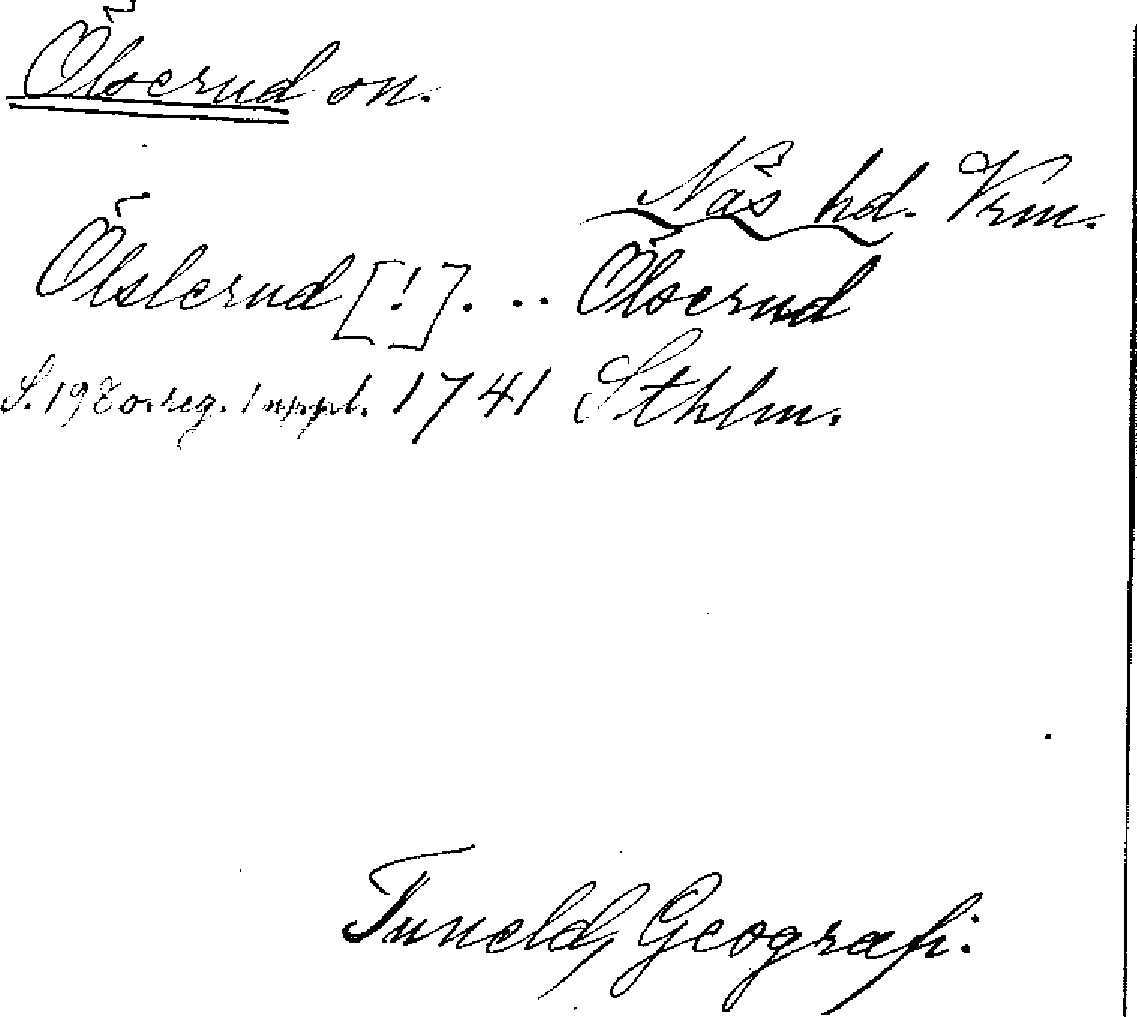 Ölserud on.
Näs hd. Vrm.
Ölslerud [!]... Ölserud
S. 198 o. reg. 1 uppl. 1741 Sthlm.
Tuneld, Geografi.